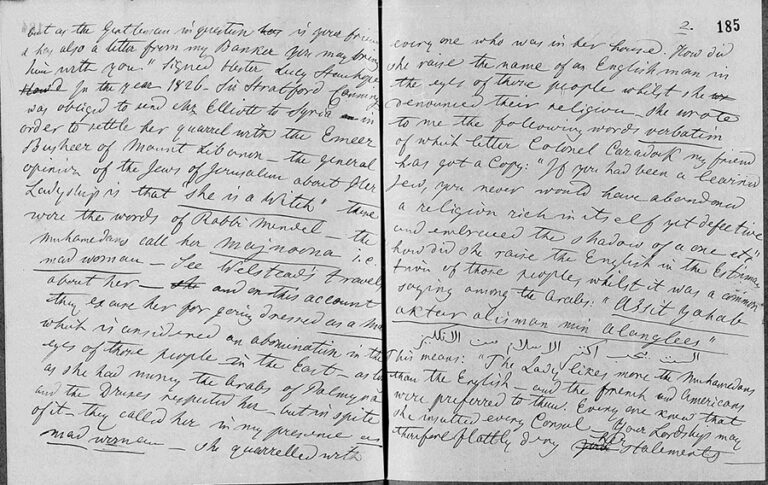 but as the Gentleman in question is your friend
& has also a letter from my Banker you may bring
him with you." Signed Hester Lucy Stanhope
In the year 1826 Sir Stratford Canning
was obliged to send Mr Elliott to Syria in
order to settle her quarrel with the Emeer
Busheer of Mount Lebanon – the general
opinion of the Jews of Jerusalem about Her
Ladyship is that "she is a Witch" these
were the words of Rabbi Mendel – the
Muhamedans call her majnoona i.e.
mad woman – See Welstead's travels
about her – and on this account
they excuse her for going dressed as a man
which is considered an abomination in the
eyes of those people in the East – as to
as she had money the Arabs of Palmyra
and the Druses respected her – but in spite
of it – they called her in my presence as
mad woman – she quarrelled with
2. 185
every one who was in her house. How did
she raise the name of an Englishman in
the eyes of those people whilst she
renounced their religion – she wrote
to me the following words verbatim
of which letter Colonel Caradock my friend
has got a Copy: "If you had been a learned
Jew, you never would have abandoned
a religion rich in itself yet defective
and embraced the shadow of a one etc"
how did she raise the English in the Estima
tion of those peoples whilst it was a common
saying among the Arabs: "Assit yahab
aktar alislam min alanglees"
الست تحب اكتر الاسلام من الانكليز
This means: "The Lady likes more the Muhamedans
than the English – and the French and Americans
were preferred to them. Every one knew that
she insulted every Consul – Your Lordships may
therefore flattly deny her statements –